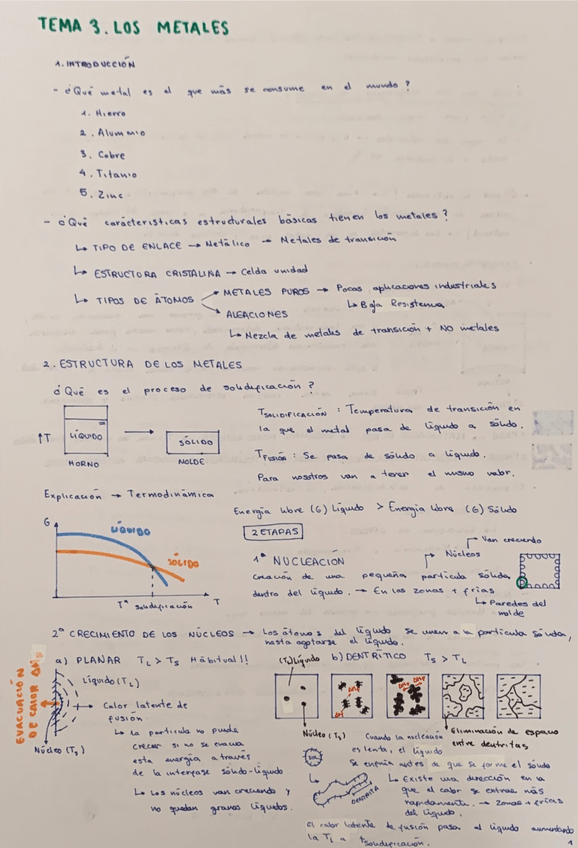 TEMA 3. LOS METALES
1. INTRODUCCIÓN
- ¿Qué metal es el que más se consume en el mundo?
1. Hierro
2. Aluminio
3. Cobre
4. Titanio
5. Zinc
- ¿Qué características estructurales básicas tienen los metales?
↳ TIPO DE ENLACE → Metálico → Metales de transición
↳ ESTRUCTURA CRISTALINA → Celda unidad
↳ TIPOS DE ÁTOMOS
METALES PUROS → Pocas aplicaciones industriales
↳ Baja Resistencia
ALEACIONES
↳ Mezcla de metales de transición + NO metales
2. ESTRUCTURA DE LOS METALES
¿Qué es el proceso de solidificación?
↑T
LÍQUIDO
HORNO
→
SÓLIDO
MOLDE
TSOLIDIFICACIÓN: Temperatura de transición en
la que el metal pasa de líquido a sólido.
TFUSIÓN: Se pasa de sólido a líquido.
Para nosotros van a tener el mismo valor.
Explicación → Termodinámica
Energía libre (G) Líquido > Energía libre (G) Sólido
G
LÍQUIDO
SÓLIDO
Tª solidificación
T
2 ETAPAS
1ª NUCLEACIÓN
Núcleos
Van creciendo
Creación de una pequeña partícula sólida
dentro del líquido. → En las zonas + frías
↳ Paredes del
molde
2ª CRECIMIENTO DE LOS NÚCLEOS → Los átomos del líquido se unen a la partícula sólida,
hasta agotarse el líquido.
a) PLANAR TL > TS Habitual!!
EVACUACIÓN
DE CALOR
Líquido (TL)
↳ Calor latente de
fusión
Núcleo (TS)
↳ la partícula no puede
crecer si no se evacua
esta energía a través
de la interfase sólido-líquido
↳ Los núcleos van creciendo y
no quedan granos líquidos.
(TL) Líquido
b) DENTRÍTICO TS > TL
Núcleo (TS)
Eliminación de espacio
entre dentritas
Cuando la nucleación
es lenta, el líquido
se enfría antes de que se forme el sólido
DENDRITA
↳ Existe una dirección en la
que el calor se extrae más
rápidamente. → Zonas + frías
del líquido.
El calor latente de fusión pasa al líquido aumentando
la TL a Tsolidificación.
1